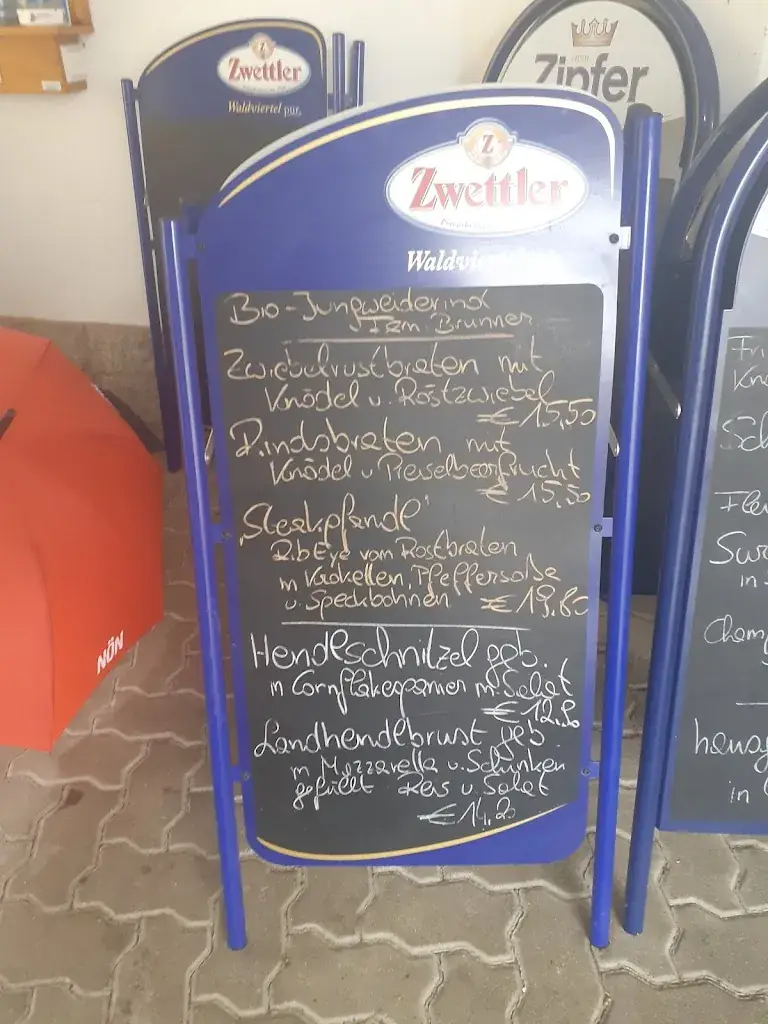 Zwettler
Waldviertel pur.
Zipfer
Z
Zwettler
Bio-Jungweiderind
Fam. Brunner
Zwiebelrostbraten mit
Knödel u. Röstzwiebel
€ 15,50
Rindsbraten mit
Knödel u Preiselbeerfrucht
€ 15,50
"Steakpfandl"
Rib Eye vom Rostbraten
m Kroketten, Pfeffersoße
u. Speckbohnen € 19,80
Hendlschnitzel geb.
m Cornflakespanier m. Salat
Landhendlbrust geb.
m Mozzarella u. Schinken
gefüllt Reis u. Salat
€ 14,20
NÖN
in